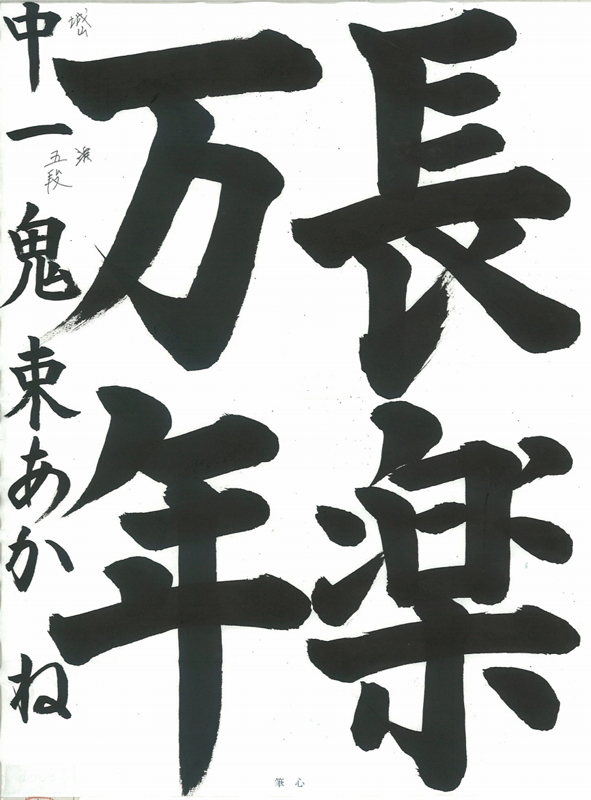 長楽
万年
中一 鬼束あかね
城山
五段
筆心